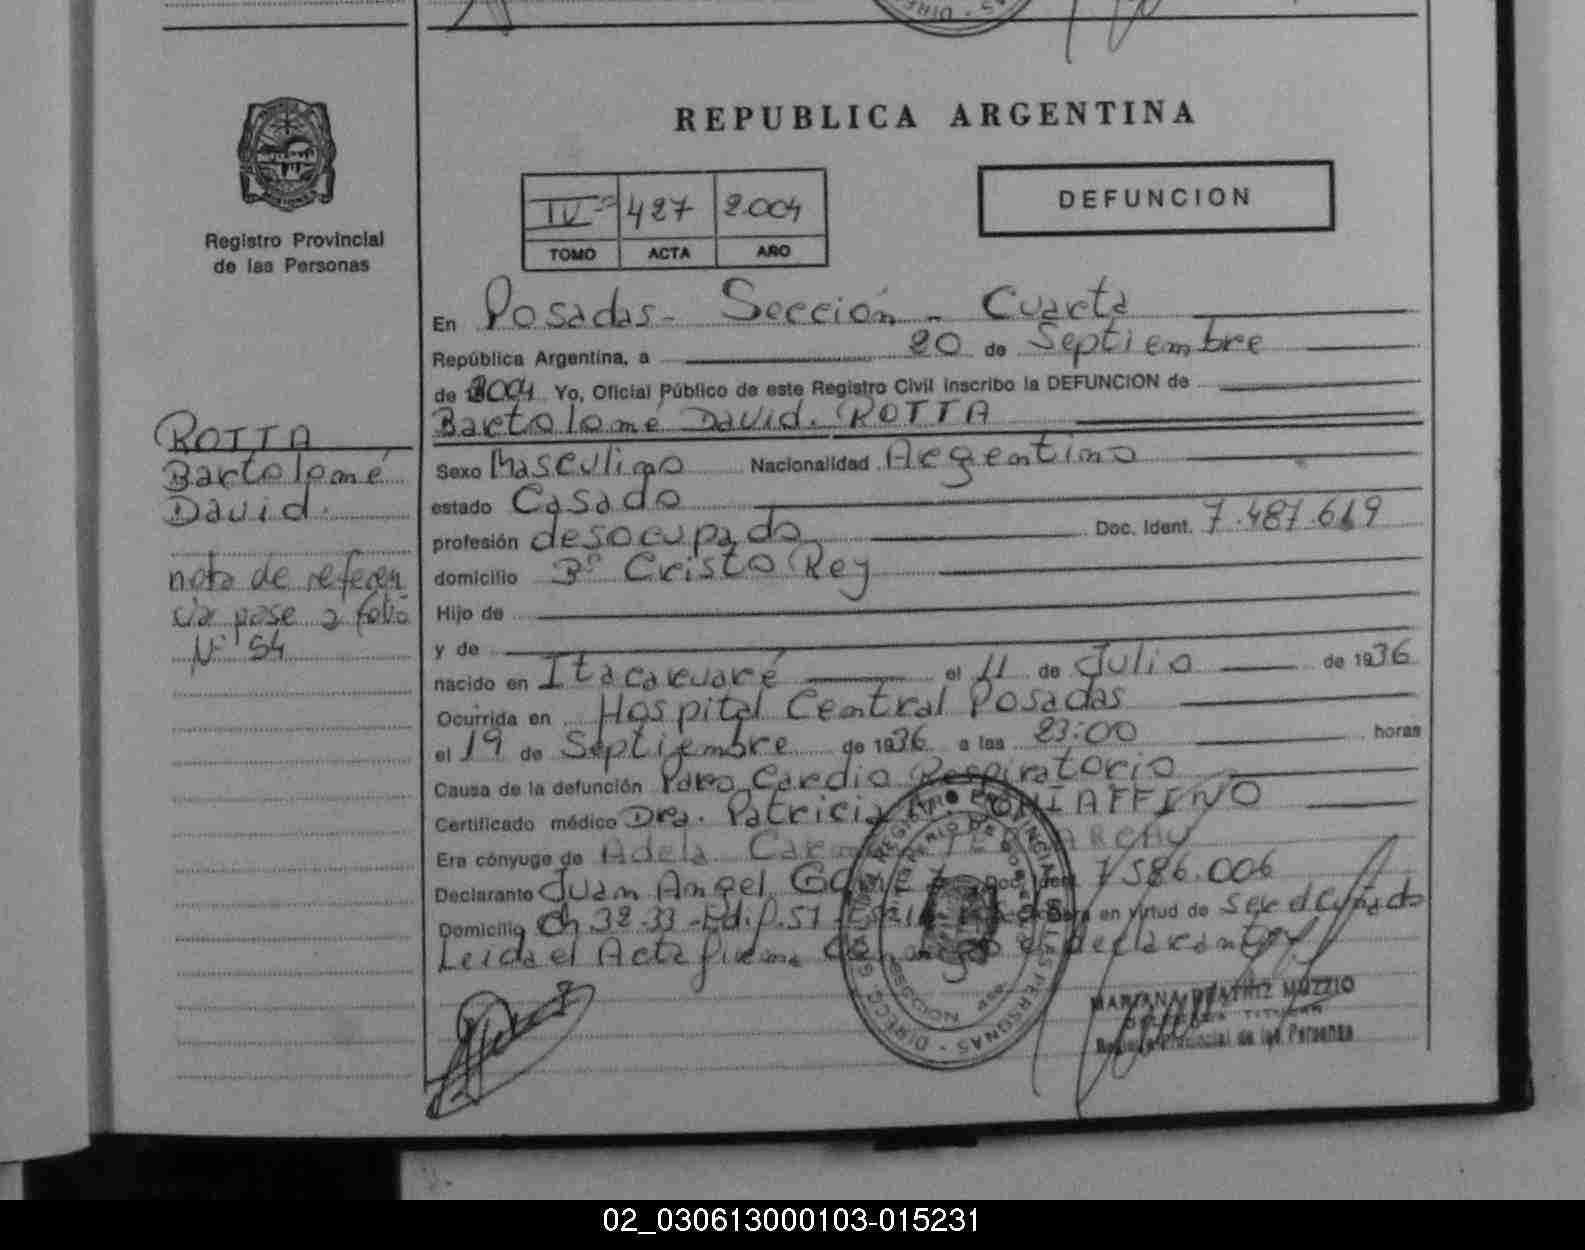 REPUBLICA ARGENTINA
Registro Provincial
de las Personas
IV 427 2004
TOMO ACTA AÑO
DEFUNCION
En Posadas - Sección - Cuarta
República Argentina, a 20 de Septiembre
de 2004 Yo, Oficial Público de este Registro Civil inscribo la DEFUNCION de
Bartolomé David. ROTTA
ROTTA
Bartolomé
David.
nota de referen
cia pase a folio
Nº 54
Sexo Masculino Nacionalidad Argentino
estado Casado
profesión desocupado Doc. Ident. 7.487.619
domicilio Bº Cristo Rey
Hijo de
y de
nacido en Itacaruaré el 11 de Julio de 1936
Ocurrida en Hospital Central Posadas
el 19 de Septiembre de 1936 a las 23:00 horas
Causa de la defunción Paro Cardio Respiratorio
Certificado médico Dra. Patricia CHIAFFINO
Era cónyuge de Adela
Declarante Juan Angel Doc. Ident. 7586.006
Domicilio Ch 32-33 - Edif. 51 en virtud de ser el cuñado
Leida el Acta firma declarante
MARIANA BEATRIZ MUZZIO
DELEGADA TITULAR
Registro Provincial de las Personas
02_030613000103-015231